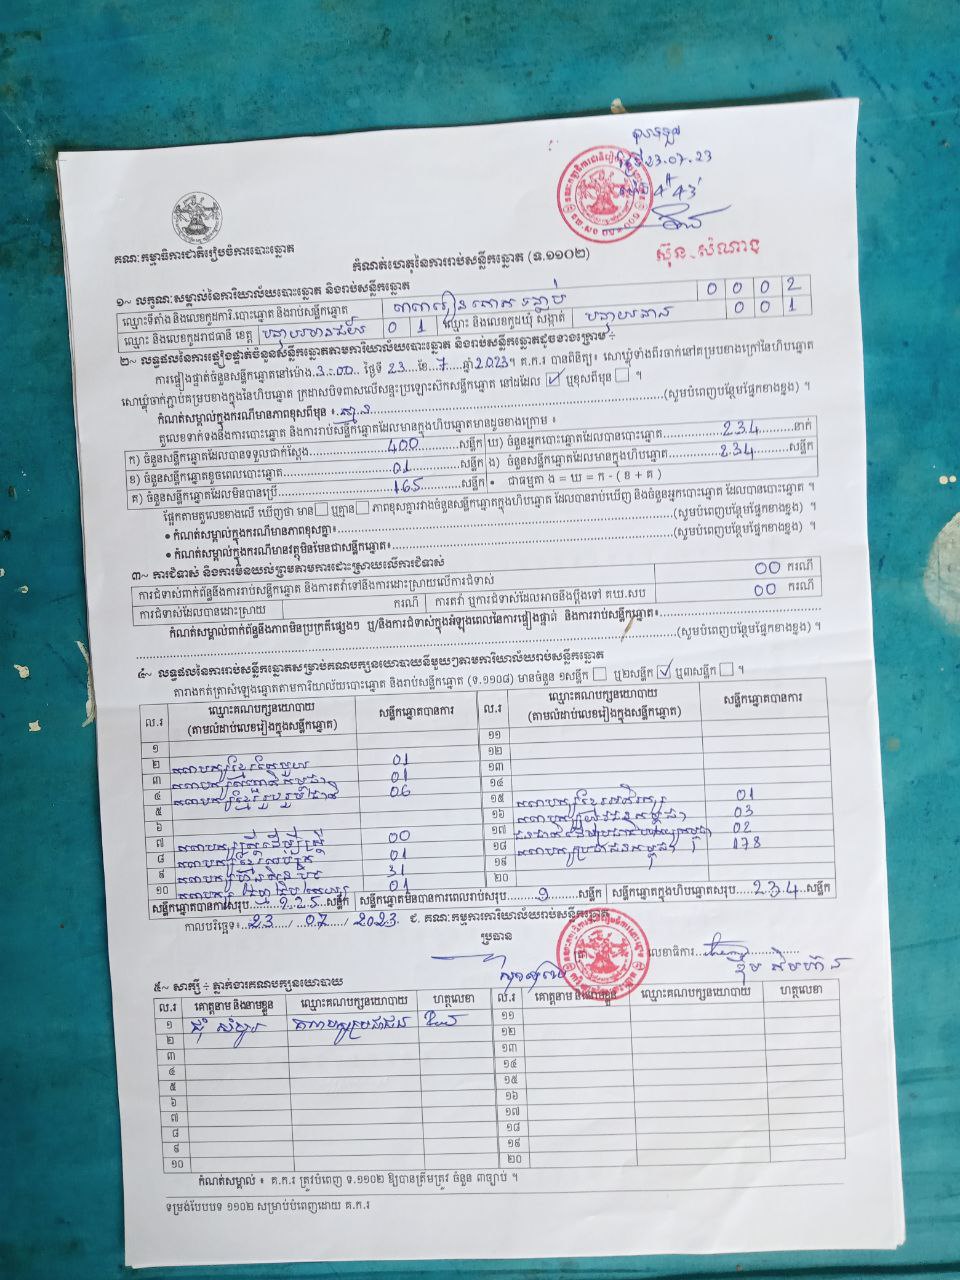 ថ្ងៃទី 23.07.23
ម៉ោង 4 43'
ស៊ុន សំណាង
គណៈកម្មាធិការជាតិរៀបចំការបោះឆ្នោត
កំណត់ហេតុនៃការរាប់សន្លឹកឆ្នោត (ទ.១១០២)
១~ លក្ខណៈសម្គាល់នៃការិយាល័យបោះឆ្នោត និងរាប់សន្លឹកឆ្នោត
ឈ្មោះទីតាំង និងលេខកូដការិ.បោះឆ្នោត និងរាប់សន្លឹកឆ្នោត 0 0 0 2
ឈ្មោះ និងលេខកូដរាជធានី ខេត្ត បន្ទាយមានជ័យ 0 1 ឈ្មោះ និងលេខកូដឃុំ សង្កាត់ បន្ទាយនាង 0 0 1
២~ លទ្ធផលនៃការផ្ទៀងផ្ទាត់ចំនួនសន្លឹកឆ្នោតតាមការិយាល័យបោះឆ្នោត និងរាប់សន្លឹកឆ្នោតដូចខាងក្រោម ÷
ការផ្ទៀងផ្ទាត់ចំនួនសន្លឹកឆ្នោតនៅម៉ោង 3:00 ថ្ងៃទី 23 ខែ 7 ឆ្នាំ 2023។ គ.ក.រ បានពិនិត្យ៖ សោឃ្លុំទាំងពីរចាក់នៅគម្របខាងក្រៅនៃហិបឆ្នោត
សោឃ្លុំចាក់ភ្ជាប់គម្របខាងក្នុងនៃហិបឆ្នោត ក្រដាសបិទពាសលើសន្ទះប្រឡោះស៊កសន្លឹកឆ្នោត នៅដដែល ☑ ឬខុសពីមុន ☐ ។
កំណត់សម្គាល់ក្នុងករណីមានភាពខុសពីមុន ៖ គ្មាន (សូមបំពេញបន្ថែមផ្នែកខាងខ្នង) ។
តួលេខទាក់ទងនឹងការបោះឆ្នោត និងការរាប់សន្លឹកឆ្នោតដែលមានក្នុងហិបឆ្នោតមានដូចខាងក្រោម ៖
ក) ចំនួនសន្លឹកឆ្នោតដែលបានទទួលជាក់ស្តែង 400 សន្លឹក ឃ) ចំនួនអ្នកបោះឆ្នោតដែលបានបោះឆ្នោត 234 នាក់
ខ) ចំនួនសន្លឹកឆ្នោតខូចពេលបោះឆ្នោត 01 សន្លឹក ង) ចំនួនសន្លឹកឆ្នោតដែលមានក្នុងហិបឆ្នោត 234 សន្លឹក
គ) ចំនួនសន្លឹកឆ្នោតដែលមិនបានប្រើ 165 សន្លឹក • ជាធម្មតា ង = ឃ = ក - ( ខ + គ )
ផ្អែកតាមតួលេខខាងលើ ឃើញថា មាន ☐ ឬគ្មាន ☐ ភាពខុសគ្នារវាងចំនួនសន្លឹកឆ្នោតក្នុងហិបឆ្នោត ដែលបានរាប់ឃើញ និងចំនួនអ្នកបោះឆ្នោត ដែលបានបោះឆ្នោត ។
• កំណត់សម្គាល់ក្នុងករណីមានភាពខុសគ្នា៖ (សូមបំពេញបន្ថែមផ្នែកខាងខ្នង) ។
• កំណត់សម្គាល់ក្នុងករណីមានវត្ថុមិនមែនជាសន្លឹកឆ្នោត៖ (សូមបំពេញបន្ថែមផ្នែកខាងខ្នង) ។
៣~ ការជំទាស់ និងការមិនយល់ព្រមតាមការដោះស្រាយលើការជំទាស់
ការជំទាស់ពាក់ព័ន្ធនឹងការរាប់សន្លឹកឆ្នោត និងការតវ៉ាទៅនឹងការដោះស្រាយលើការជំទាស់ 00 ករណី
ការជំទាស់ដែលបានដោះស្រាយ ករណី ការតវ៉ា ឬការជំទាស់ដែលអាចនឹងប្តឹងទៅ គឃ.សប 00 ករណី
កំណត់សម្គាល់ពាក់ព័ន្ធនឹងភាពមិនប្រក្រតីផ្សេងៗ ឬ/និងការជំទាស់ក្នុងអំឡុងពេលនៃការផ្ទៀងផ្ទាត់ និងការរាប់សន្លឹកឆ្នោត៖
(សូមបំពេញបន្ថែមផ្នែកខាងខ្នង) ។
៤~ លទ្ធផលនៃការរាប់សន្លឹកឆ្នោតសម្រាប់គណបក្សនយោបាយនីមួយៗតាមការិយាល័យរាប់សន្លឹកឆ្នោត
តារាងកត់ត្រាសំឡេងឆ្នោតតាមការិយាល័យបោះឆ្នោត និងរាប់សន្លឹកឆ្នោត (ទ.១១០៨) មានចំនួន ១សន្លឹក ☐ ឬ២សន្លឹក ☑ ឬ៣សន្លឹក ☐ ។
ល.រ ឈ្មោះគណបក្សនយោបាយ (តាមលំដាប់លេខរៀងក្នុងសន្លឹកឆ្នោត) សន្លឹកឆ្នោតបានការ ល.រ ឈ្មោះគណបក្សនយោបាយ (តាមលំដាប់លេខរៀងក្នុងសន្លឹកឆ្នោត) សន្លឹកឆ្នោតបានការ
១ ១១
២ គណបក្សខ្មែរតែមួយ 01 ១២
៣ 01 ១៣
៤ គណបក្សខ្មែររួបរួមជាតិ 06 ១៤
៥ ១៥ គណបក្សខ្មែរអភិរក្ស 01
៦ ១៦ គណបក្សយុវជនកម្ពុជា 03
៧ គណបក្សស្ត្រីដើម្បីស្ត្រី 00 ១៧ 02
៨ 01 ១៨ គណបក្សប្រជាជនកម្ពុជា 178
៩ គណបក្សហ៊្វុនស៊ិនប៉ិច 31 ១៩
១០ 01 ២០
សន្លឹកឆ្នោតបានការសរុប 225 សន្លឹក សន្លឹកឆ្នោតមិនបានការពេលរាប់សរុប 9 សន្លឹក សន្លឹកឆ្នោតក្នុងហិបឆ្នោតសរុប 234 សន្លឹក
កាលបរិច្ឆេទ៖ 23 / 07 / 2023 ជ. គណៈកម្មការការិយាល័យរាប់សន្លឹកឆ្នោត
ប្រធាន
លេខាធិការ
៥~ សាក្សី ÷ ភ្នាក់ងារគណបក្សនយោបាយ
ល.រ គោត្តនាម និងនាមខ្លួន ឈ្មោះគណបក្សនយោបាយ ហត្ថលេខា ល.រ គោត្តនាម និងនាមខ្លួន ឈ្មោះគណបក្សនយោបាយ ហត្ថលេខា
១ គណបក្សប្រជាជន ១១
២ ១២
៣ ១៣
៤ ១៤
៥ ១៥
៦ ១៦
៧ ១៧
៨ ១៨
៩ ១៩
១០ ២០
កំណត់សម្គាល់ ៖ គ.ក.រ ត្រូវបំពេញ ទ.១១០២ ឱ្យបានត្រឹមត្រូវ ចំនួន ៣ច្បាប់ ។
ទម្រង់បែបបទ ១១០២ សម្រាប់បំពេញដោយ គ.ក.រ